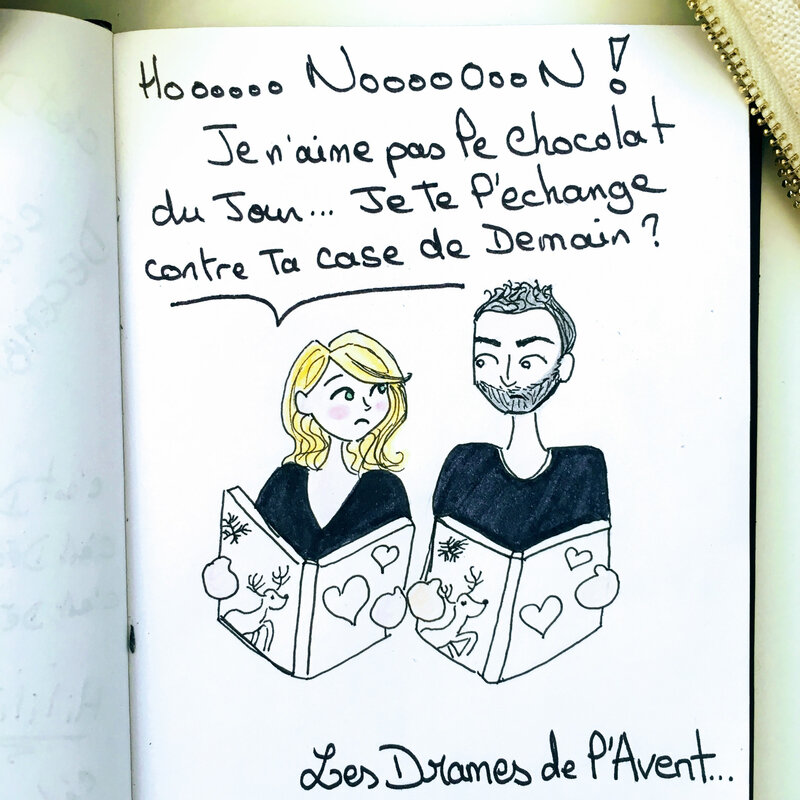 Hoooooo NoooooOooN !
Je n'aime pas le chocolat
du Jour... Je te l'echange
contre Ta case de Demain ?
Les Drames de l'Avent...